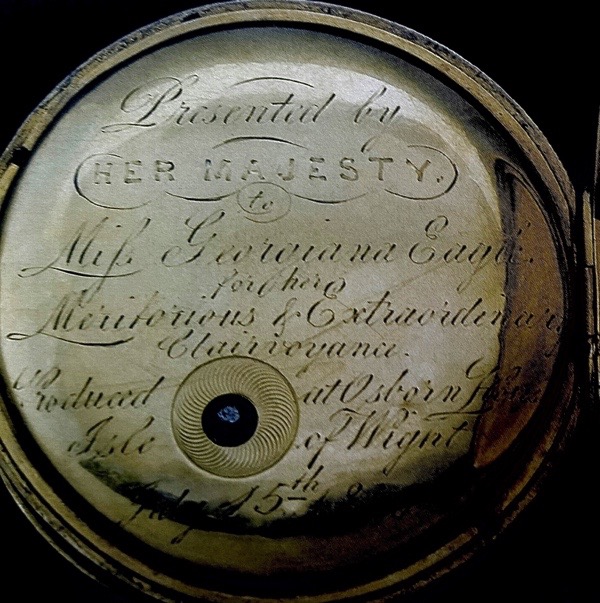 Presented by
HER MAJESTY.
to
Miss. Georgiana Eagle.
for her
Meritorious & Extraordinary
Clairvoyance.
Produced at Osborn House
Isle of Wight
July 15th